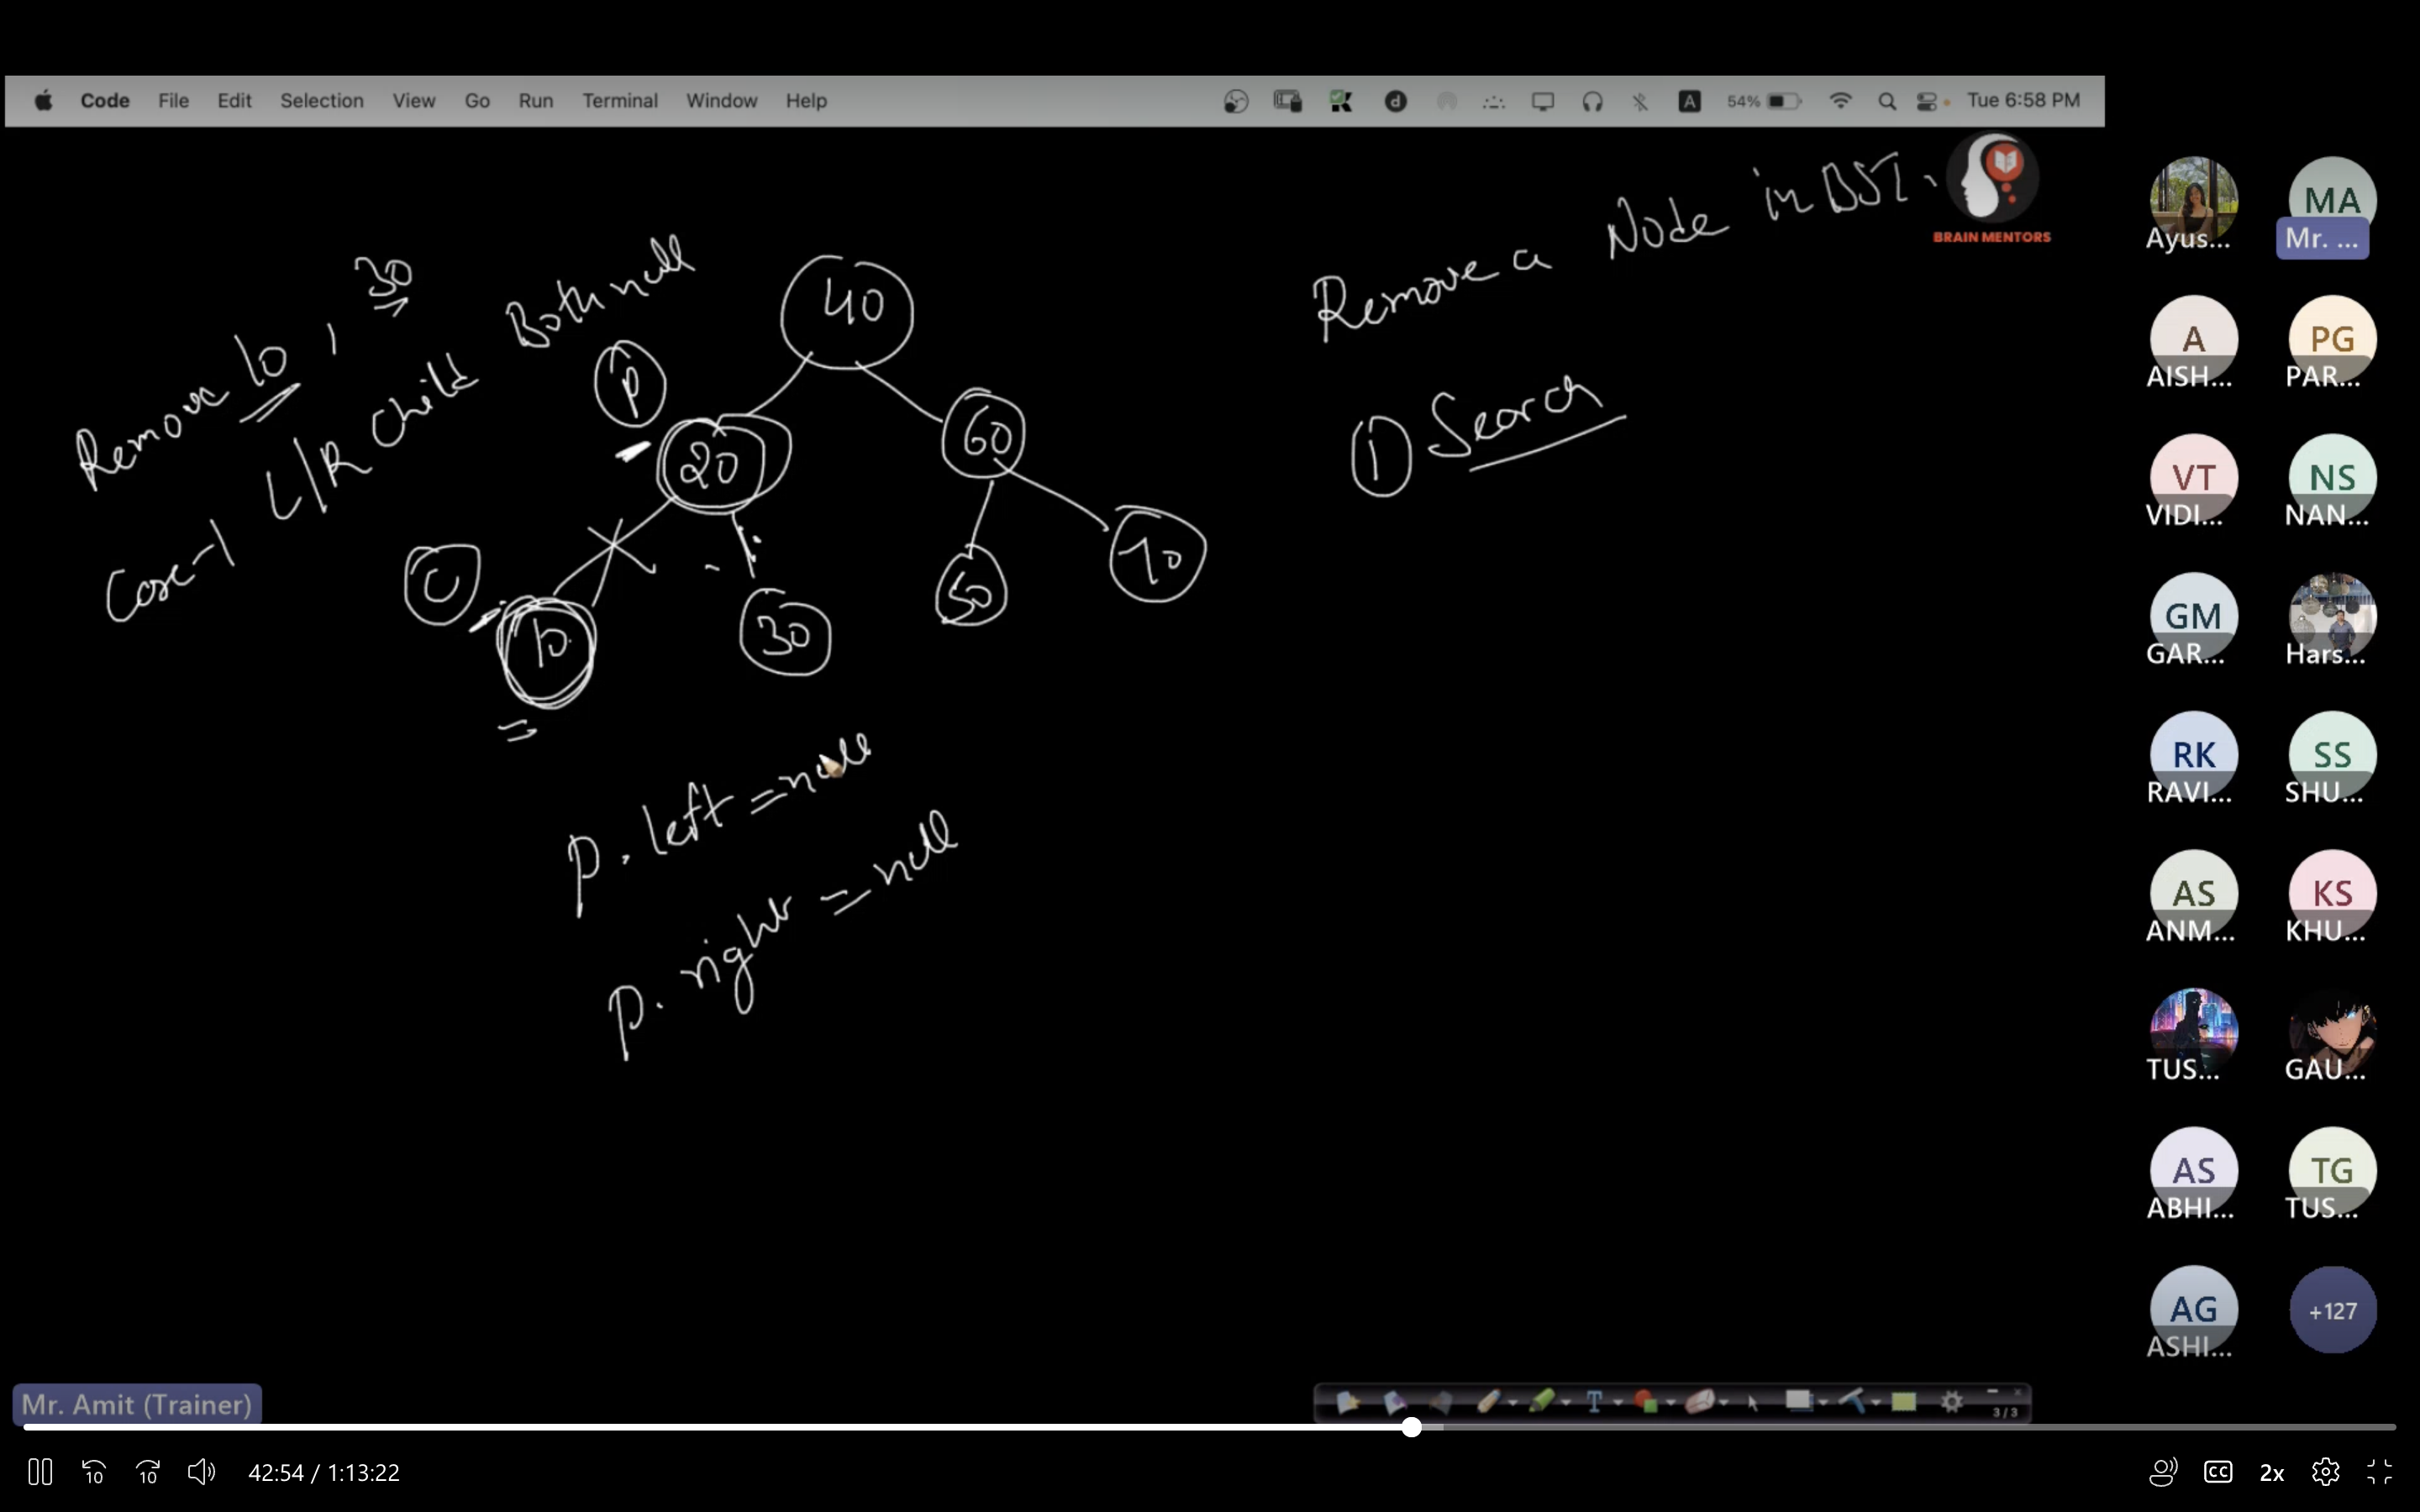 Code File Edit Selection View Go Run Terminal Window Help
54% Tue 6:58 PM
Remove a Node in BST.
BRAIN MENTORS
① Search
Remove 10, 30
Case-1 L/R Child Both null
40
P
20
60
C
10
30
50
70
P. left = null
P. right = null
Ayus...
MA
Mr. ...
A
AISH...
PG
PAR...
VT
VIDI...
NS
NAN...
GM
GAR...
Hars...
RK
RAVI...
SS
SHU...
AS
ANM...
KS
KHU...
TUS...
GAU...
AS
ABHI...
TG
TUS...
AG
ASHI...
+127
Mr. Amit (Trainer)
T
3/3
10 10 42:54 / 1:13:22
CC 2x